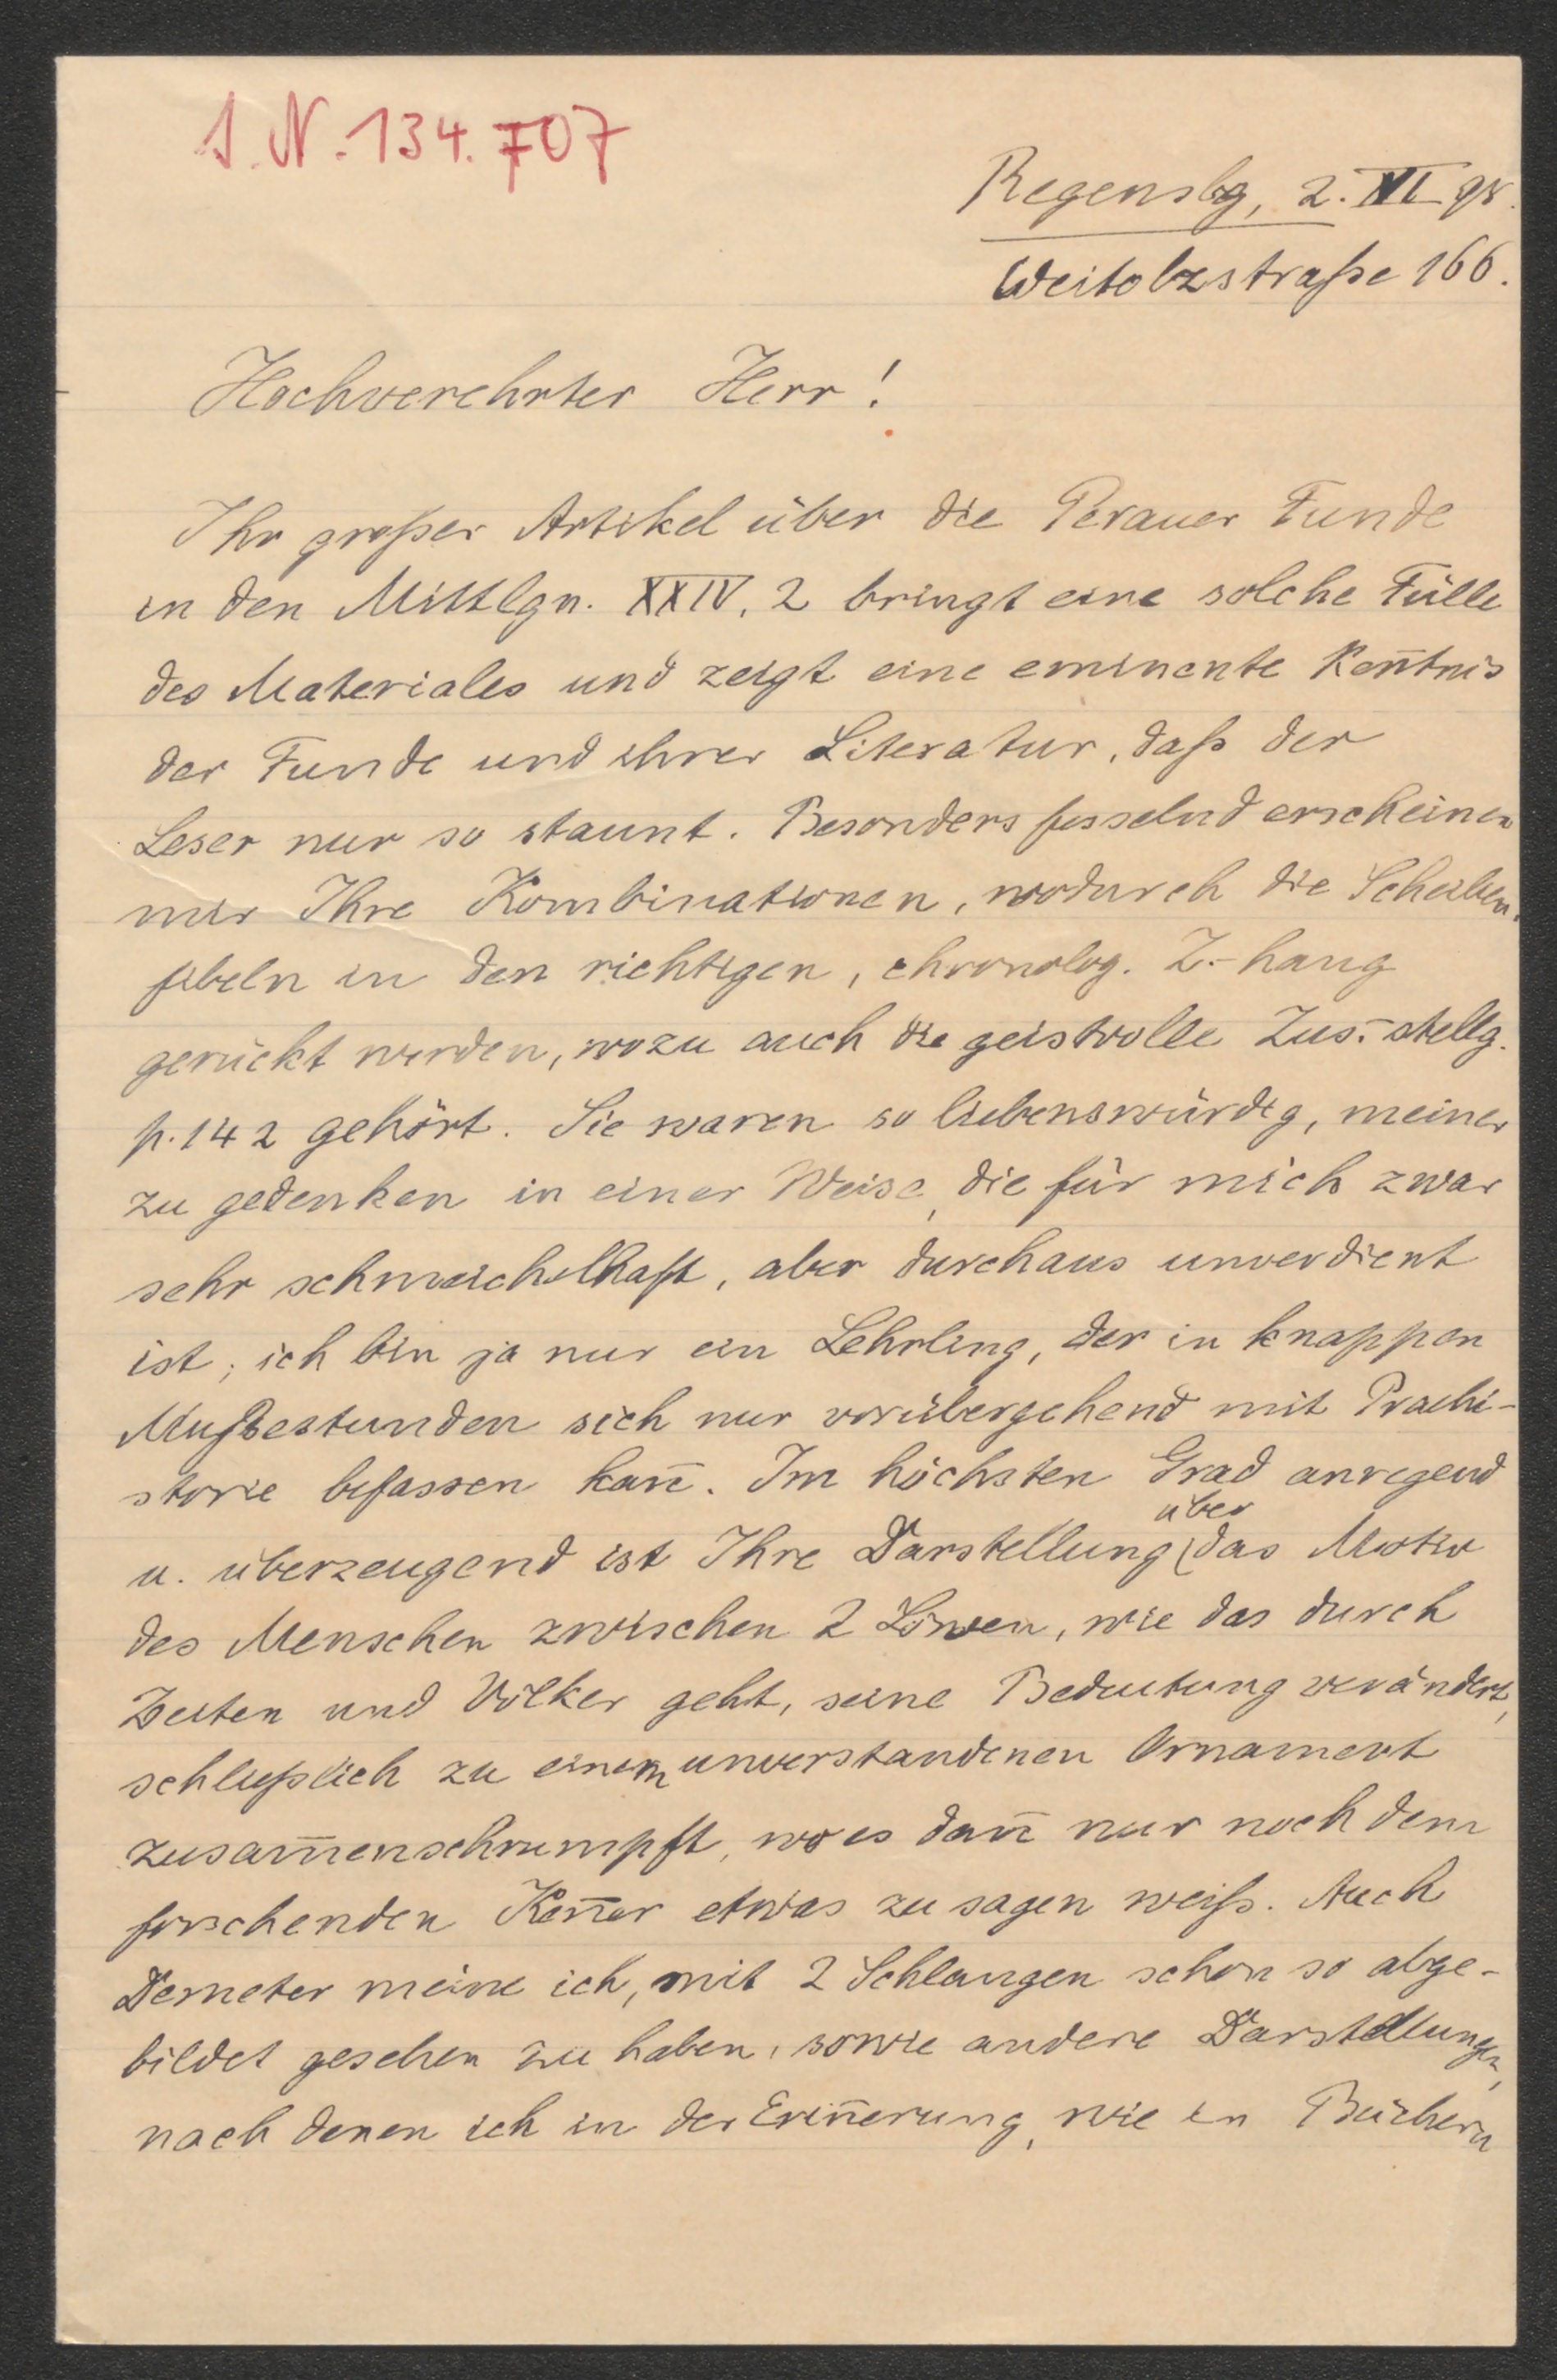 J. N. 134.707
Regensbg, 2. XI 98.
Weitolzstraße 166.
Hochverehrter Herr!
Ihr großer Artikel über die Perauer Funde
in den Mittlgn. XXIV, 2 bringt eine solche Fülle
des Materiales und zeigt eine eminente Ken̄tnis
der Funde und ihrer Literatur, daß der
Leser nur so staunt. Besonders fesselnd erscheinen
mir Ihre Kombinationen, wodurch die Scheiben-
fibeln in den richtigen, chronolog. Z.-hang
gerückt werden, wozu auch die geistvolle Zus.-stellg.
p. 142 gehört. Sie waren so liebenswürdig, meiner
zu gedenken in einer Weise, die für mich zwar
sehr schmeichelhaft, aber durchaus unverdient
ist; ich bin ja nur ein Lehrling, der in knappen
Mußestunden sich nur vorübergehend mit Praehi-
storie befassen kan̄. Im höchsten Grad anregend
u. überzeugend ist Ihre Darstellung über das Motiv
des Menschen zwischen 2 Löwen, wie das durch
Zeiten und Völker geht, seine Bedeutung verändert,
schließlich zu einem unverstandenen Ornament
zusam̄enschrumpft, wo es dan̄ nur noch dem
forschenden Ken̄er etwas zu sagen weiß. Auch
Demeter meine ich, mit 2 Schlangen schon so abge-
bildet gesehen zu haben, sowie andere Darstellungen,
nach denen ich in der Erin̄erung, wie in Büchern